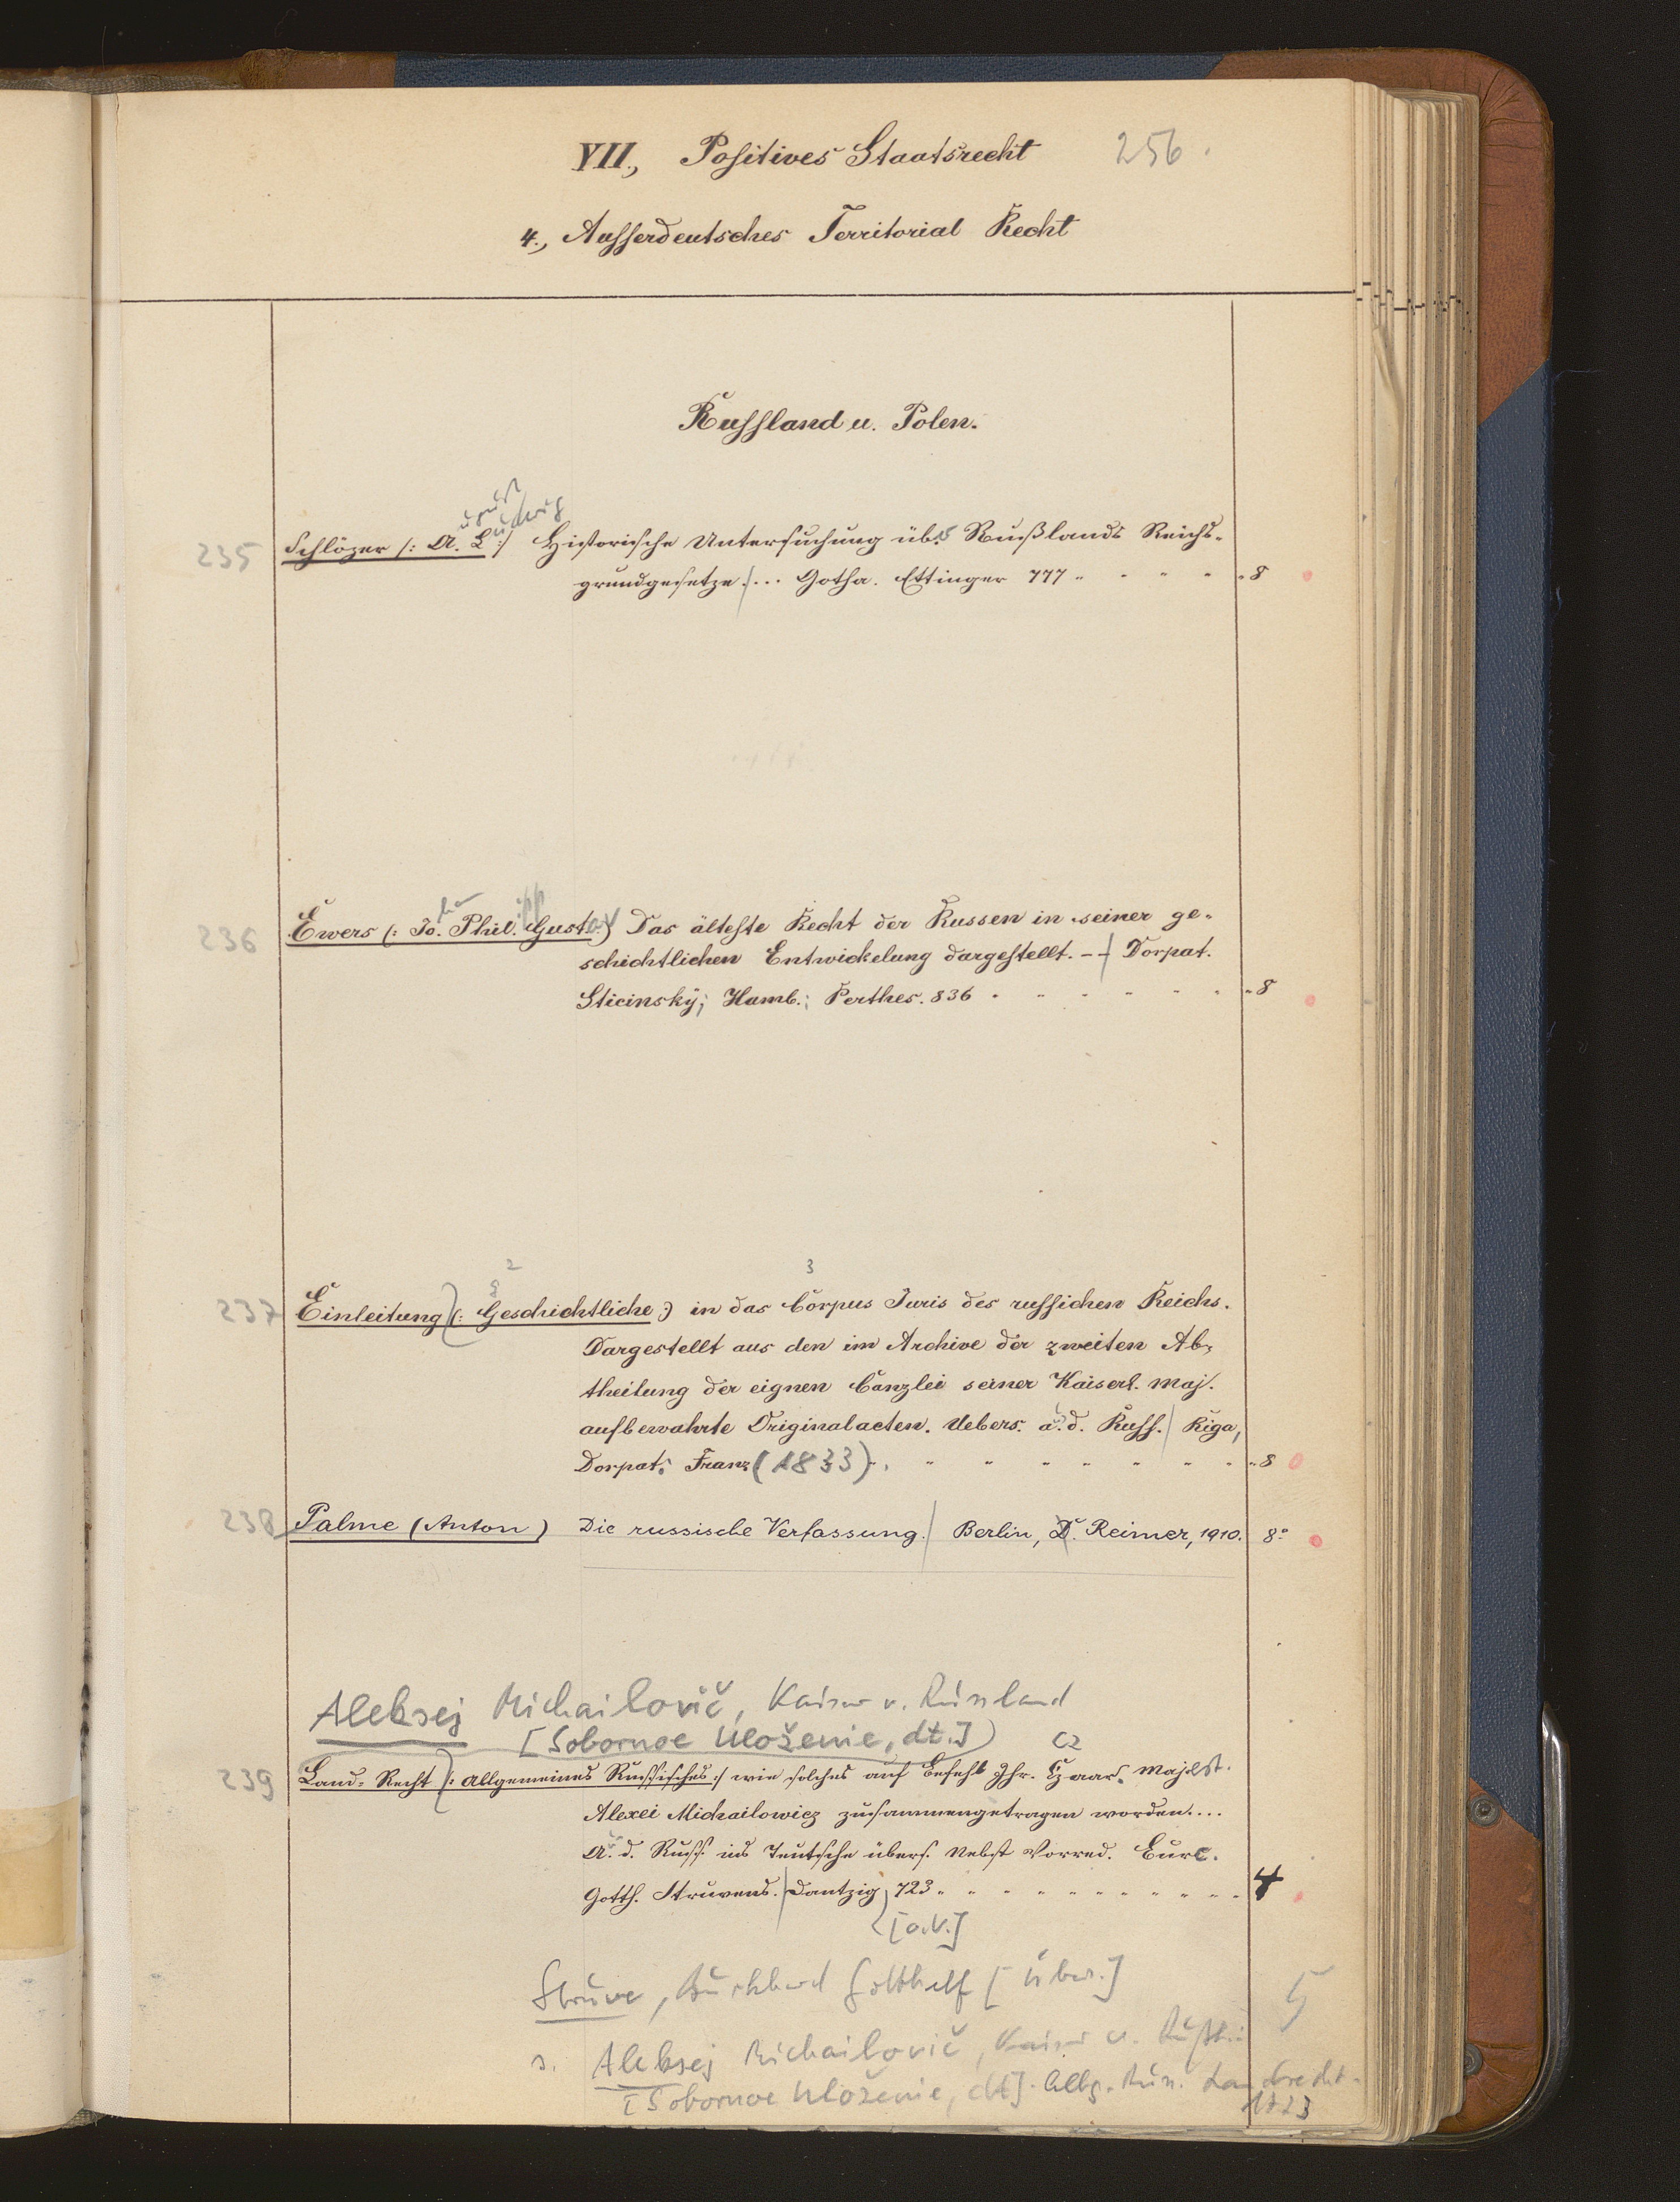 VII., Positives Staatsrecht 256.
4., Ausserdeutsches Territorial Recht
Russland u. Polen.
ugust udwig
235 Schlözer /: A. L. :/ Historische Untersuchung über Rußlands Reichs-
grundgesetze. ... Gotha. Ettinger 777 8
236 Ewers (: Jo. Phil. Gustav :) Das älteste Recht der Russen in seiner ge-
schichtlichen Entwickelung dargestellt. -- Dorpat.
Sticinsky; Hamb.; Perthes. 836 8
2 3
237 Einleitung (: Geschichtliche :) in das Corpus Juris des russichen Reichs.
Dargestellt aus den im Archive der zweiten Ab-
theilung der eignen Canzlei seiner Kaiserl. Maj.
aufbewahrte Originalacten. Uebers. a. d. Russ. Riga,
Dorpat; Franz (1833) 8
238 Palme (Anton) Die russische Verfassung. Berlin, D. Reimer, 1910. 8°
Aleksej Michailovič, Kaiser v. Russland
[Sobornoe Uloženie, dt.]
cz
239 Land-Recht /: Allgemeines Russisches :/ wie solches auf Befehl Ihr. Czaar. Majest.
Alexei Michailowicz zusammengetragen worden....
A. d. Russ. ins Teutsche übers. Nebst Vorred. Burc.
Gotth. Struvens. Dantzig, 723 4
[o.V.]
Struve, Burkhard Gotthelf [Übers.]
5
s. Aleksej Michailovič, Kaiser v. Rußl.:
[Sobornoe Uloženie, dt]. Allg. Russ. Landrecht.
1723